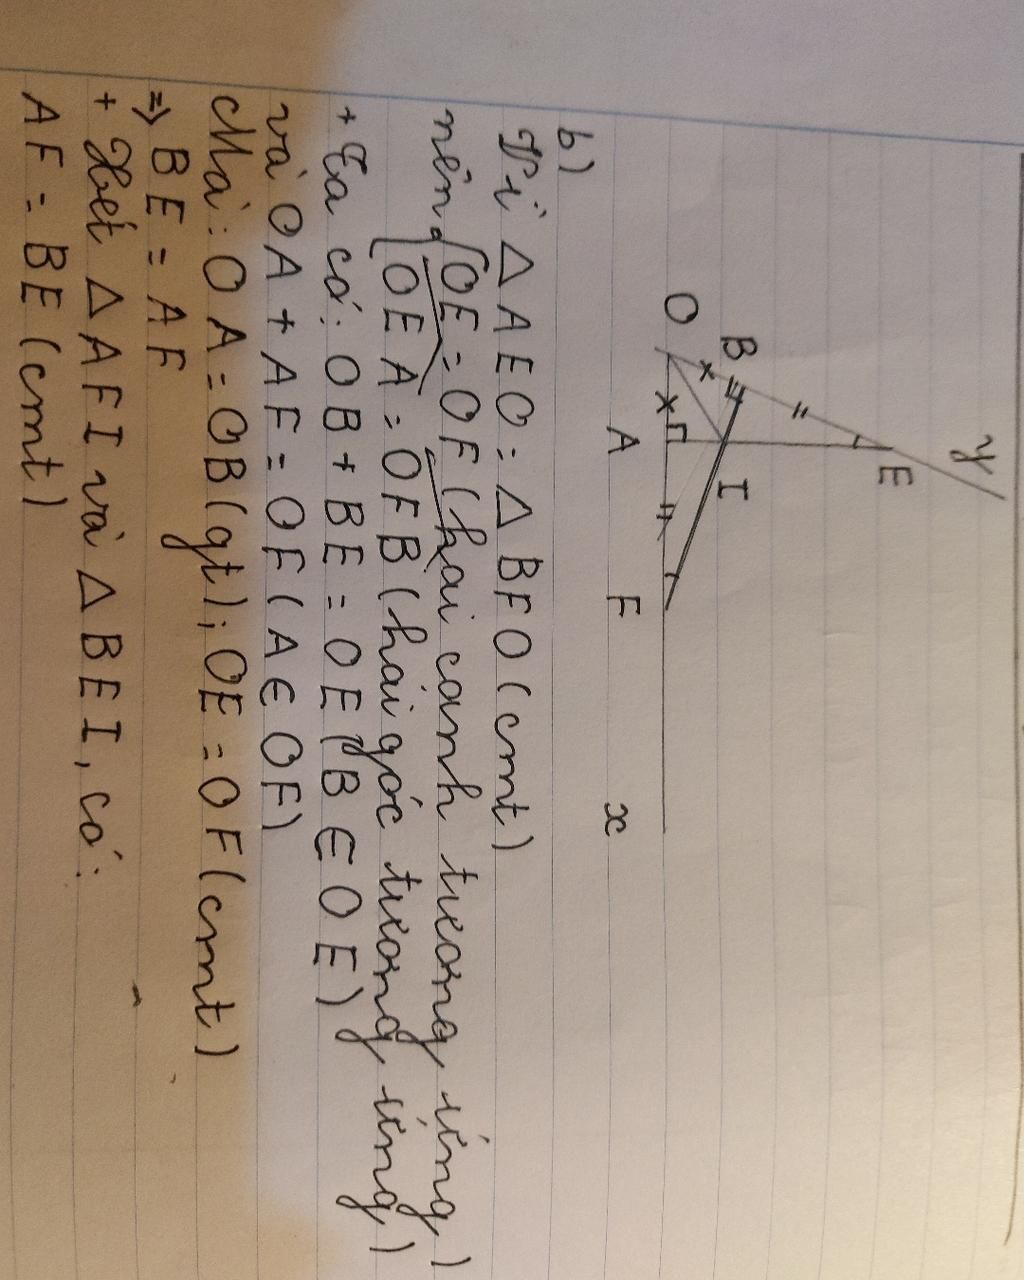 y
E
B
I
O
A
F
x
b)
Vì △AEO = △BFO (cmt)
nên OE = OF (hai cạnh tương ứng)
OEA = OFB (hai góc tương ứng)
+ Ta có: OB + BE = OE (B ∈ OE)
và OA + AF = OF (A ∈ OF)
Mà: OA = OB (gt); OE = OF (cmt)
=> BE = AF
+ Xét △AFI và △BEI, có:
AF = BE (cmt)